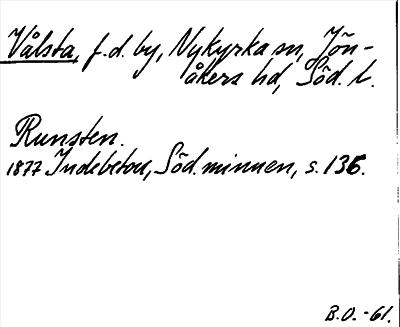 Vålsta, f.d. by, Nykyrka sn, Jön-
åkers hd, Söd. l.
Runsten.
1877 Indebetou, Söd. minnen, s. 136.
B.O. -61.